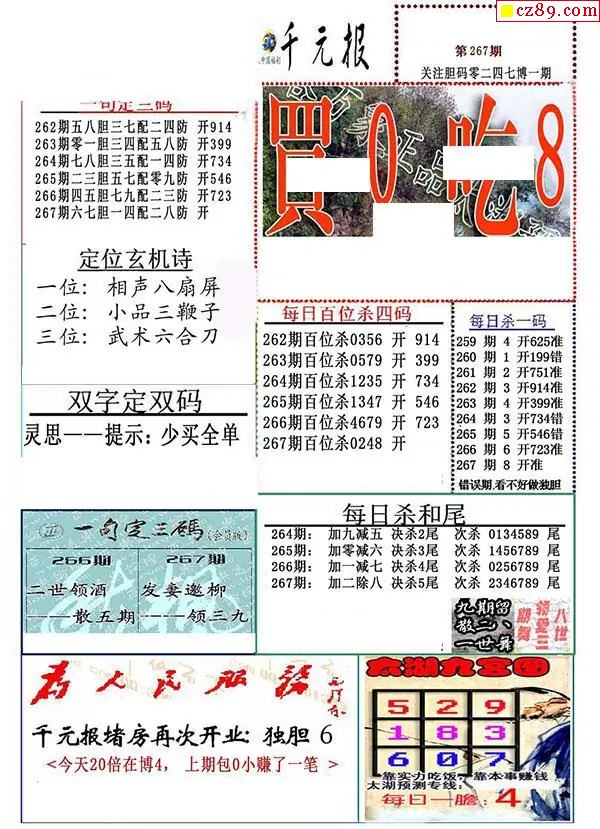 cz89.com
千元报
中国福利
第267期
关注胆码零二四七博一期
一句定三码
262期五八胆三七配二四防 开914
263期零一胆三四配五八防 开399
264期七八胆三五配一四防 开734
265期二三胆五七配零九防 开546
266期四五胆七九配二三防 开723
267期六七胆一四配二八防 开
買0吃8
定位玄机诗
一位: 相声八扇屏
二位: 小品三鞭子
三位: 武术六合刀
每日百位杀四码
262期百位杀0356 开 914
263期百位杀0579 开 399
264期百位杀1235 开 734
265期百位杀1347 开 546
266期百位杀4679 开 723
267期百位杀0248 开
每日杀一码
259 期 4 开625准
260 期 1 开199错
261 期 2 开751准
262 期 3 开914准
263 期 4 开399准
264 期 3 开734错
265 期 5 开546错
266 期 6 开723准
267 期 8 开准
错误期,看不好做独胆
双字定双码
灵思——提示: 少买全单
一句定三碼(会员版)
266期
267期
二世领酒
——散五期
发妻邀柳
——领三九
每日杀和尾
264期: 加九减五 决杀2尾 次杀 0134589 尾
265期: 加零减六 决杀3尾 次杀 1456789 尾
266期: 加一减七 决杀4尾 次杀 0256789 尾
267期: 加二除八 决杀5尾 次杀 2346789 尾
九期留
散二、
一世舞
八世
翩舞
为人民服务
千元报堵房再次开业: 独胆 6
<今天20倍在博4, 上期包0小赚了一笔 >
太湖九宫图
5 2 9
1 8 3
6 0 7
靠实力吃饭, 靠本事赚钱
太湖预测专线:
每日一胆: 4